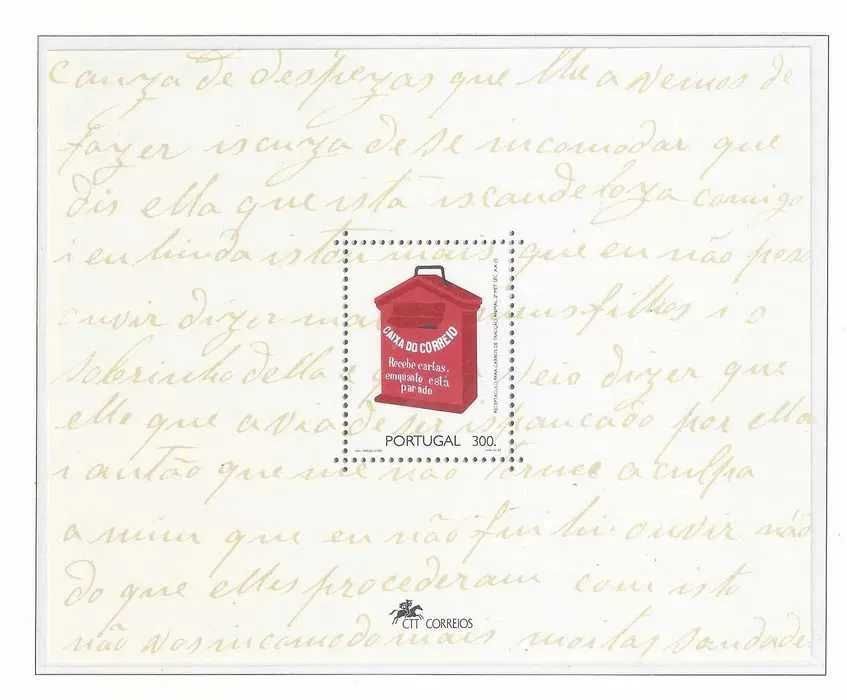 cauza de despezas que elle a vemos de
fazer iscuza de se incomodar que
dis ella que istá iscandeloza comigo
i eu hinda istou mais que eu não poss
ouvir dizer ma us filhos i o
sobrinho della e q veio dizer que
elle que avia de ser ispancado por ella
i antão que me não torne a culpa
a mim que eu não fui li ouvir não
do que elles procederam com isto
não vos incomodo mais moitas saudade
CAIXA DO CORREIO
Recebe cartas,
enquanto está
parado
RECEPTÁCULO PARA CARROS DE TRACÇÃO ANIMAL 2ª MET. SÉC. XIX
PORTUGAL 300.
CTT CORREIOS